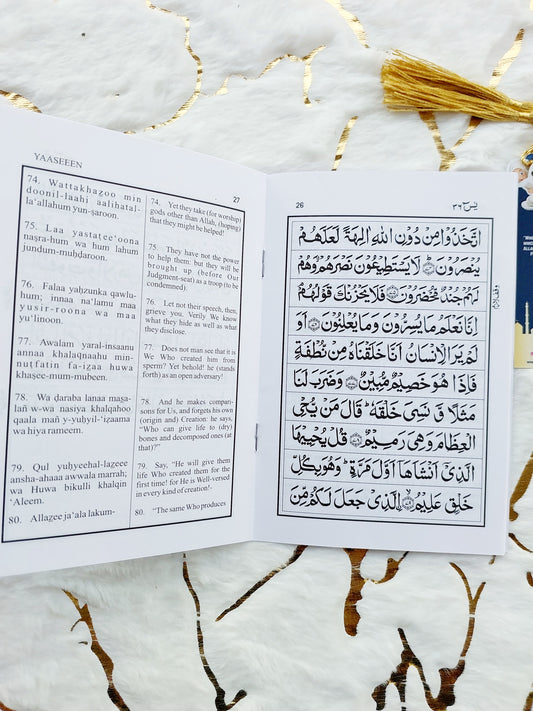 YAASEEEN
27
74. Wattakhazoo min
doonil-laahi aalihatal-
la'allahum yun-ṣaroon.
75. Laa yastatee'oona
naṣra-hum wa hum lahum
jundum-muḥḍaroon.
76. Falaa yaḥzunka qawlu-
hum; innaa na'lamu maa
yusir-roona wa maa
yu'linoon.
77. Awalam yaral-insaanu
annaa khalaqnaahu min-
nuṭfatin fa-izaa huwa
khaṣeem-mum-mubeen.
78. Wa ḍaraba lanaa maṣa-
laṅ w-wa nasiya khalqahoo
qaala maṅ y-yuḥyil-'iẓaama
wa hiya rameem.
79. Qul yuḥyeehal-lazeee
ansha-ahaaa awwala marrah;
wa Huwa bikulli khalqin
'Aleem.
80. Allazee ja'ala lakum-
74. Yet they take (for worship)
gods other than Allah, (hoping)
that they might be helped!
75. They have not the power
to help them: but they will be
brought up (before Our
Judgment-seat) as a troop (to be
condemned).
76. Let not their speech, then,
grieve you. Verily We know
what they hide as well as what
they disclose.
77. Does not man see that it is
We Who created him from
sperm? Yet behold! he (stands
forth) as an open adversary!
78. And he makes compari-
sons for Us, and forgets his own
(origin and) Creation: he says,
"Who can give life to (dry)
bones and decomposed ones (at
that)?"
79. Say, "He will give them
life Who created them for the
first time! for He is Well-versed
in every kind of creation!.
80. "The same Who produces
26
يٰسٓ ٣٦
اتَّخَذُوْا مِنْ دُوْنِ اللّٰهِ اٰلِهَةً لَّعَلَّهُمْ
يُنْصَرُوْنَ ﴿٧٤﴾ لَا يَسْتَطِيْعُوْنَ نَصْرَهُمْ وَهُمْ
لَهُمْ جُنْدٌ مُّحْضَرُوْنَ ﴿٧٥﴾ فَلَا يَحْزُنْكَ قَوْلُهُمْ
اِنَّا نَعْلَمُ مَا يُسِرُّوْنَ وَمَا يُعْلِنُوْنَ ﴿٧٦﴾ اَوَ
لَمْ يَرَ الْاِنْسَانُ اَنَّا خَلَقْنٰهُ مِنْ نُّطْفَةٍ
فَاِذَا هُوَ خَصِيْمٌ مُّبِيْنٌ ﴿٧٧﴾ وَضَرَبَ لَنَا
مَثَلًا وَّ نَسِيَ خَلْقَهٗ ؕ قَالَ مَنْ يُّحْيِ
الْعِظَامَ وَهِيَ رَمِيْمٌ ﴿٧٨﴾ قُلْ يُحْيِيْهَا
الَّذِيْۤ اَنْشَاَهَاۤ اَوَّلَ مَرَّةٍ ؕ وَهُوَ بِكُلِّ
خَلْقٍ عَلِيْمُ ﴿٧٩﴾ الَّذِيْ جَعَلَ لَكُمْ مِّنَ